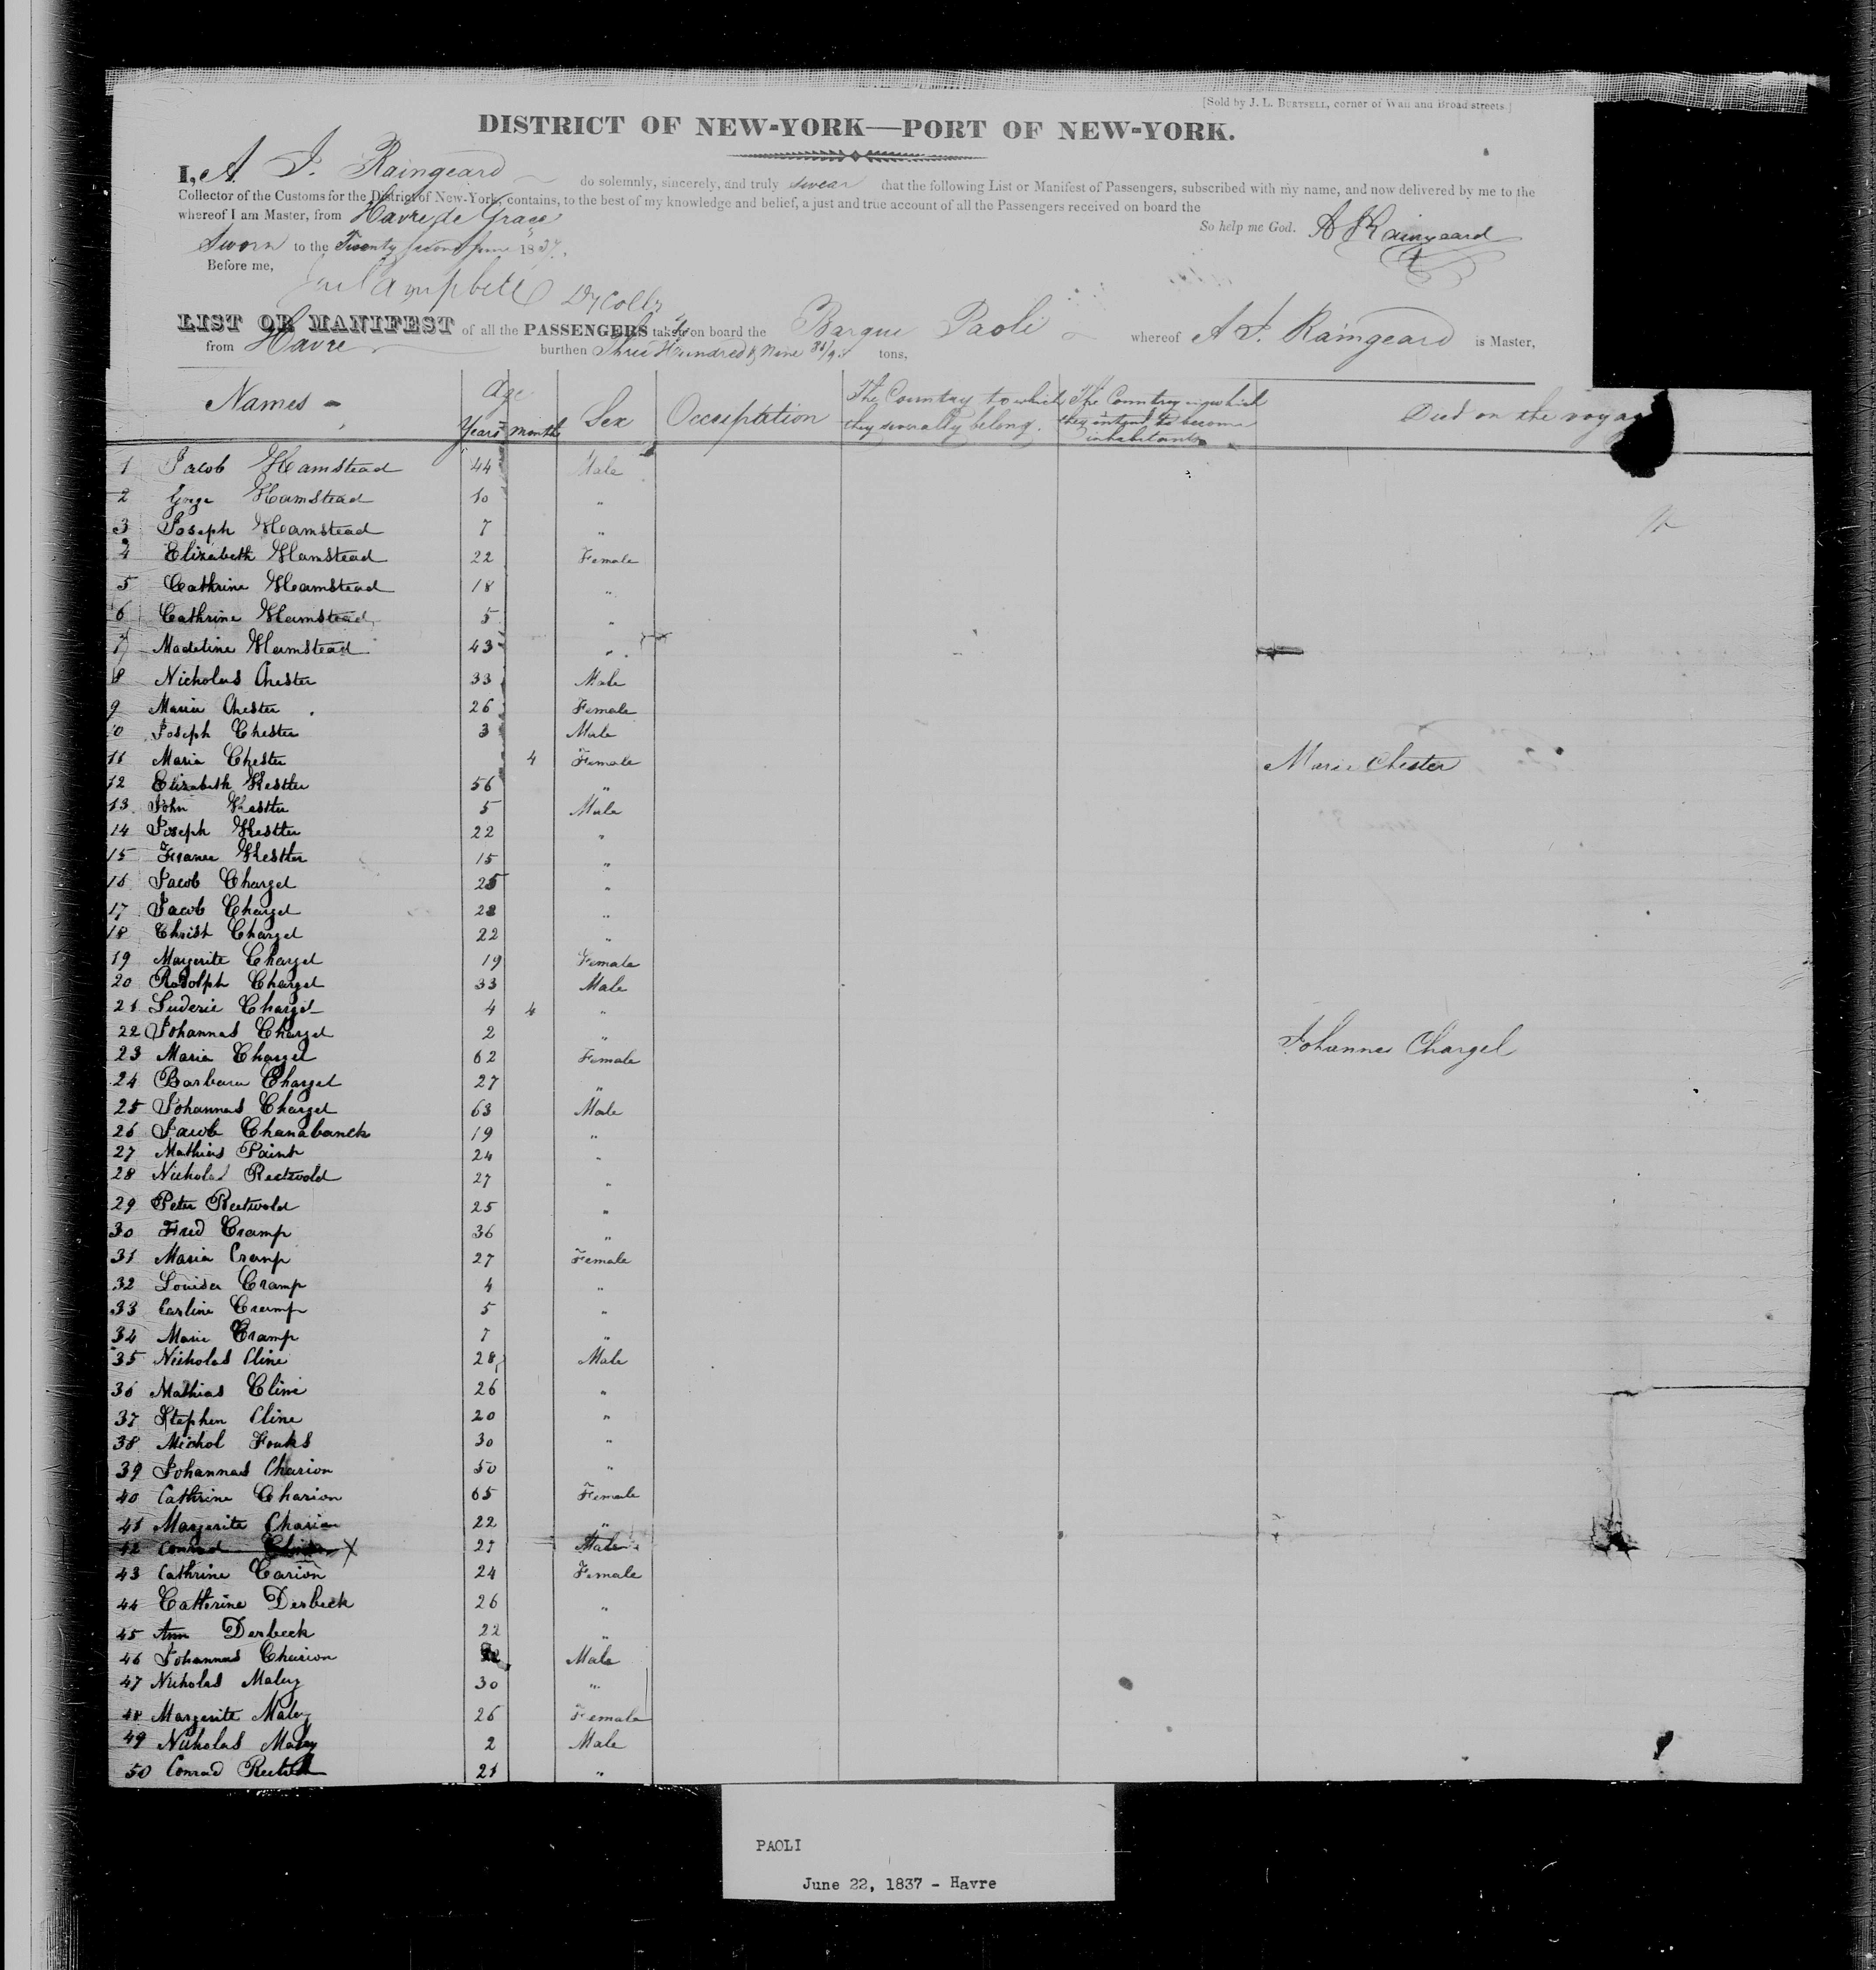 [Sold by J. L. BURTSELL, corner of Wall and Broad streets.]
DISTRICT OF NEW-YORK—PORT OF NEW-YORK.
I, A. J. Raingeard do solemnly, sincerely, and truly swear that the following List or Manifest of Passengers, subscribed with my name, and now delivered by me to the
Collector of the Customs for the District of New-York, contains, to the best of my knowledge and belief, a just and true account of all the Passengers received on board the
whereof I am Master, from Havre de Grace
So help me God. A J Raingeard
Sworn to the Twenty second June 1837.
Before me,
Campbell Dy Coll
LIST OR MANIFEST of all the PASSENGERS taken on board the Barque Paoli whereof A J. Raingeard is Master,
from Havre burthen Three Hundred & Nine 86/95 tons,
Names Age Years month Sex Occupation The Country to which they severally belong. The Country in which they intend to become inhabitants Died on the voyage
1 Jacob Hamstead 44 Male
2 Gorge Hamstead 10 "
3 Joseph Hamstead 7 "
4 Elizabeth Hamstead 22 Female
5 Cathrine Hamstead 18 "
6 Cathrine Hamstead 5 "
7 Madeline Hamstead 43 "
8 Nicholas Chester 33 Male
9 Maria Chester 26 Female
10 Joseph Chester 3 Male
11 Maria Chester 4 Female Marie Chester
12 Elizabeth Hestter 56 "
13 John Hestter 5 Male
14 Joseph Hestter 22 "
15 France Hestter 15 "
16 Jacob Chargel 25 "
17 Jacob Chargel 28 "
18 Christ Chargel 22 "
19 Margerite Chargel 19 Female
20 Rodolph Chargel 33 Male
21 Luderie Chargel 4 4 "
22 Johannas Chargel 2 " Johannes Chargel
23 Maria Chargel 62 Female
24 Barbara Chargel 27 "
25 Johannas Chargel 63 Male
26 Jacob Chanabanck 19 "
27 Mathias Paint 24 "
28 Nicholas Rectwold 27 "
29 Peter Rectwold 25 "
30 Fred Cramp 36 "
31 Maria Cramp 27 Female
32 Louisa Cramp 4 "
33 Carline Cramp 5 "
34 Marie Cramp 7 "
35 Nicholas Cline 28 Male
36 Mathias Cline 26 "
37 Stephen Cline 20 "
38 Michol Fouks 30 "
39 Johannas Charion 50 "
40 Cathrine Charion 65 Female
41 Margerite Charion 22 "
42 Conrad X 27 Male
43 Cathrine Carion 24 Female
44 Catherine Derbeck 26 "
45 Ann Derbeck 22 "
46 Johannas Charion Male
47 Nicholas Maley 30 "
48 Margerite Maley 26 Female
49 Nicholas Maley 2 Male
50 Conrad 21 "
PAOLI
June 22, 1837 - Havre